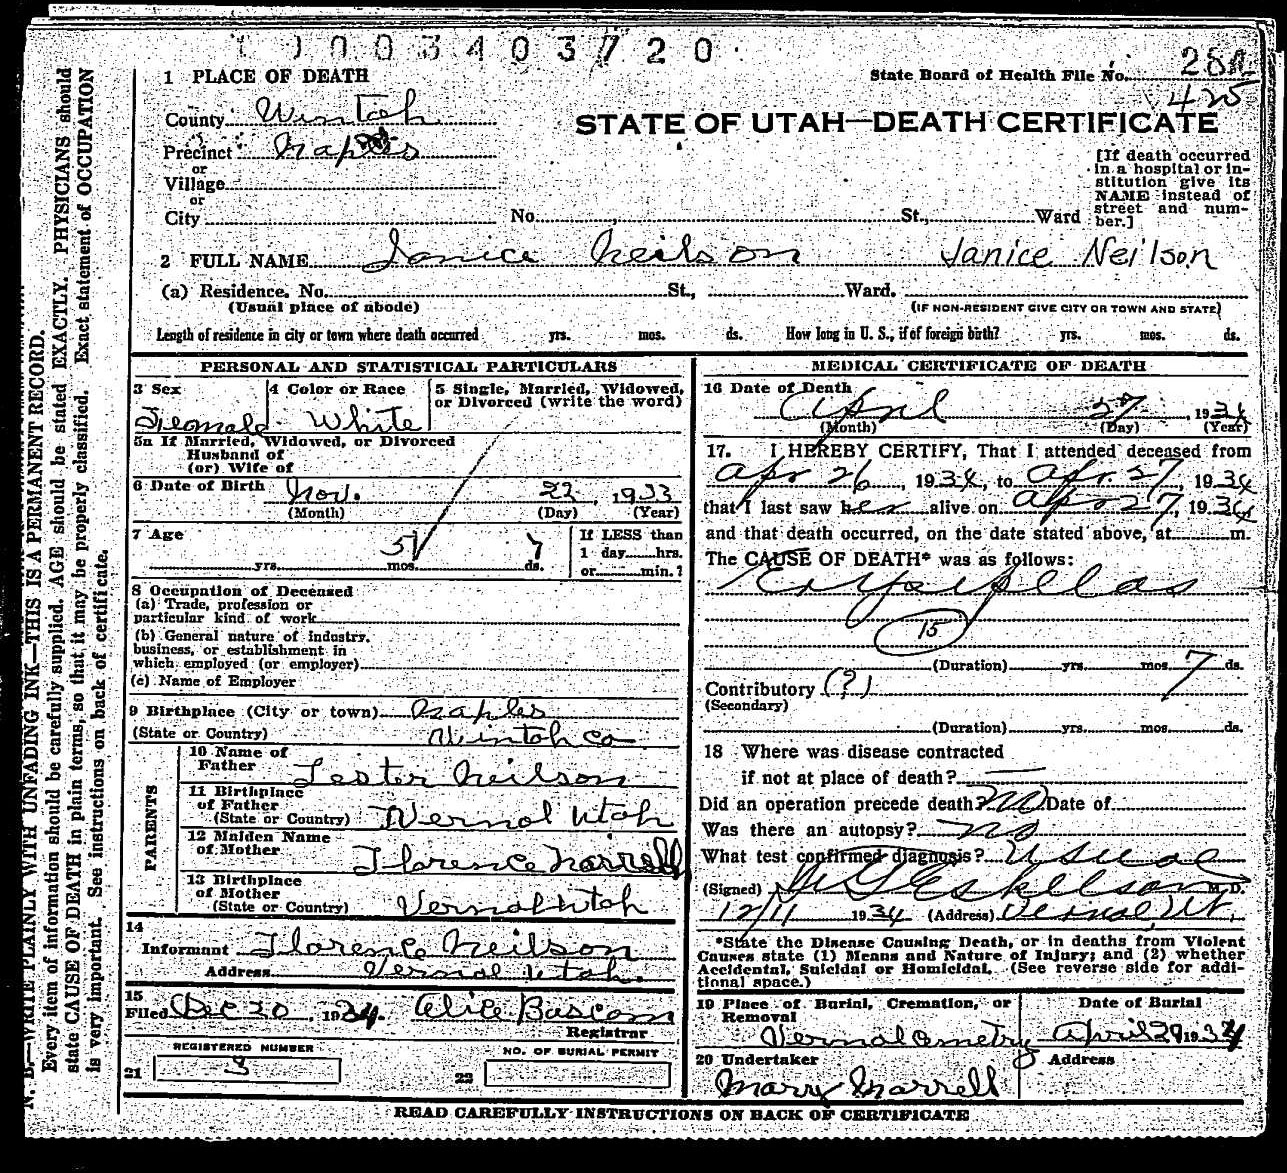 1 0 0 3 4 0 3 7 2 0
1 PLACE OF DEATH
State Board of Health File No.
425
County Uintah
STATE OF UTAH—DEATH CERTIFICATE
Precinct Naples
or
Village
or
City No. St., Ward
[If death occurred
in a hospital or in-
stitution give its
NAME instead of
street and num-
ber.]
2 FULL NAME Janice Neilson Janice Neilson
(a) Residence. No. St., Ward.
(Usual place of abode) (IF NON-RESIDENT GIVE CITY OR TOWN AND STATE)
Length of residence in city or town where death occurred yrs. mos. ds. How long in U. S., if of foreign birth? yrs. mos. ds.
PERSONAL AND STATISTICAL PARTICULARS
3 Sex 4 Color or Race 5 Single, Married, Widowed,
or Divorced (write the word)
Female White
5a If Married, Widowed, or Divorced
Husband of
(or) Wife of
6 Date of Birth Nov. 22, 1933
(Month) (Day) (Year)
7 Age 5 7
yrs. mos. ds.
If LESS than
1 day hrs.
or min.?
8 Occupation of Deceased
(a) Trade, profession or
particular kind of work
(b) General nature of industry,
business, or establishment in
which employed (or employer)
(c) Name of Employer
9 Birthplace (City or town) Naples
(State or Country) Uintah Co
PARENTS
10 Name of
Father Lester Neilson
11 Birthplace
of Father
(State or Country) Vernal Utah
12 Maiden Name
of Mother Florence Harrell
13 Birthplace
of Mother
(State or Country) Vernal Utah
14
Informant Florence Neilson
Address Vernal Utah.
15
Filed Dec 20, 1934. Alice Bascom
Registrar
REGISTERED NUMBER
21 3
NO. OF BURIAL PERMIT
22
MEDICAL CERTIFICATE OF DEATH
16 Date of Death
April 27, 1934
(Month) (Day) (Year)
17. I HEREBY CERTIFY, That I attended deceased from
Apr 26, 1934, to Apr. 27, 1934
that I last saw her alive on Apr 27, 1934
and that death occurred, on the date stated above, at m.
The CAUSE OF DEATH* was as follows:
Erysipelas
15
(Duration) yrs. mos. 7 ds.
Contributory (?)
(Secondary)
(Duration) yrs. mos. ds.
18 Where was disease contracted
if not at place of death? —
Did an operation precede death? no Date of
Was there an autopsy? no
What test confirmed diagnosis? usual
(Signed) Eskelson M. D.
12/11 1934 (Address) Vernal Ut.
*State the Disease Causing Death, or in deaths from Violent
Causes state (1) Means and Nature of Injury; and (2) whether
Accidental, Suicidal or Homicidal. (See reverse side for addi-
tional space.)
19 Place of Burial, Cremation, or
Removal
Date of Burial
April 29 1934
20 Undertaker Address
READ CAREFULLY INSTRUCTIONS ON BACK OF CERTIFICATE
N. B.—WRITE PLAINLY WITH UNFADING INK—THIS IS A PERMANENT RECORD.
Every item of information should be carefully supplied. AGE should be stated EXACTLY. PHYSICIANS should
state CAUSE OF DEATH in plain terms, so that it may be properly classified. Exact statement of OCCUPATION
is very important. See instructions on back of certificate.